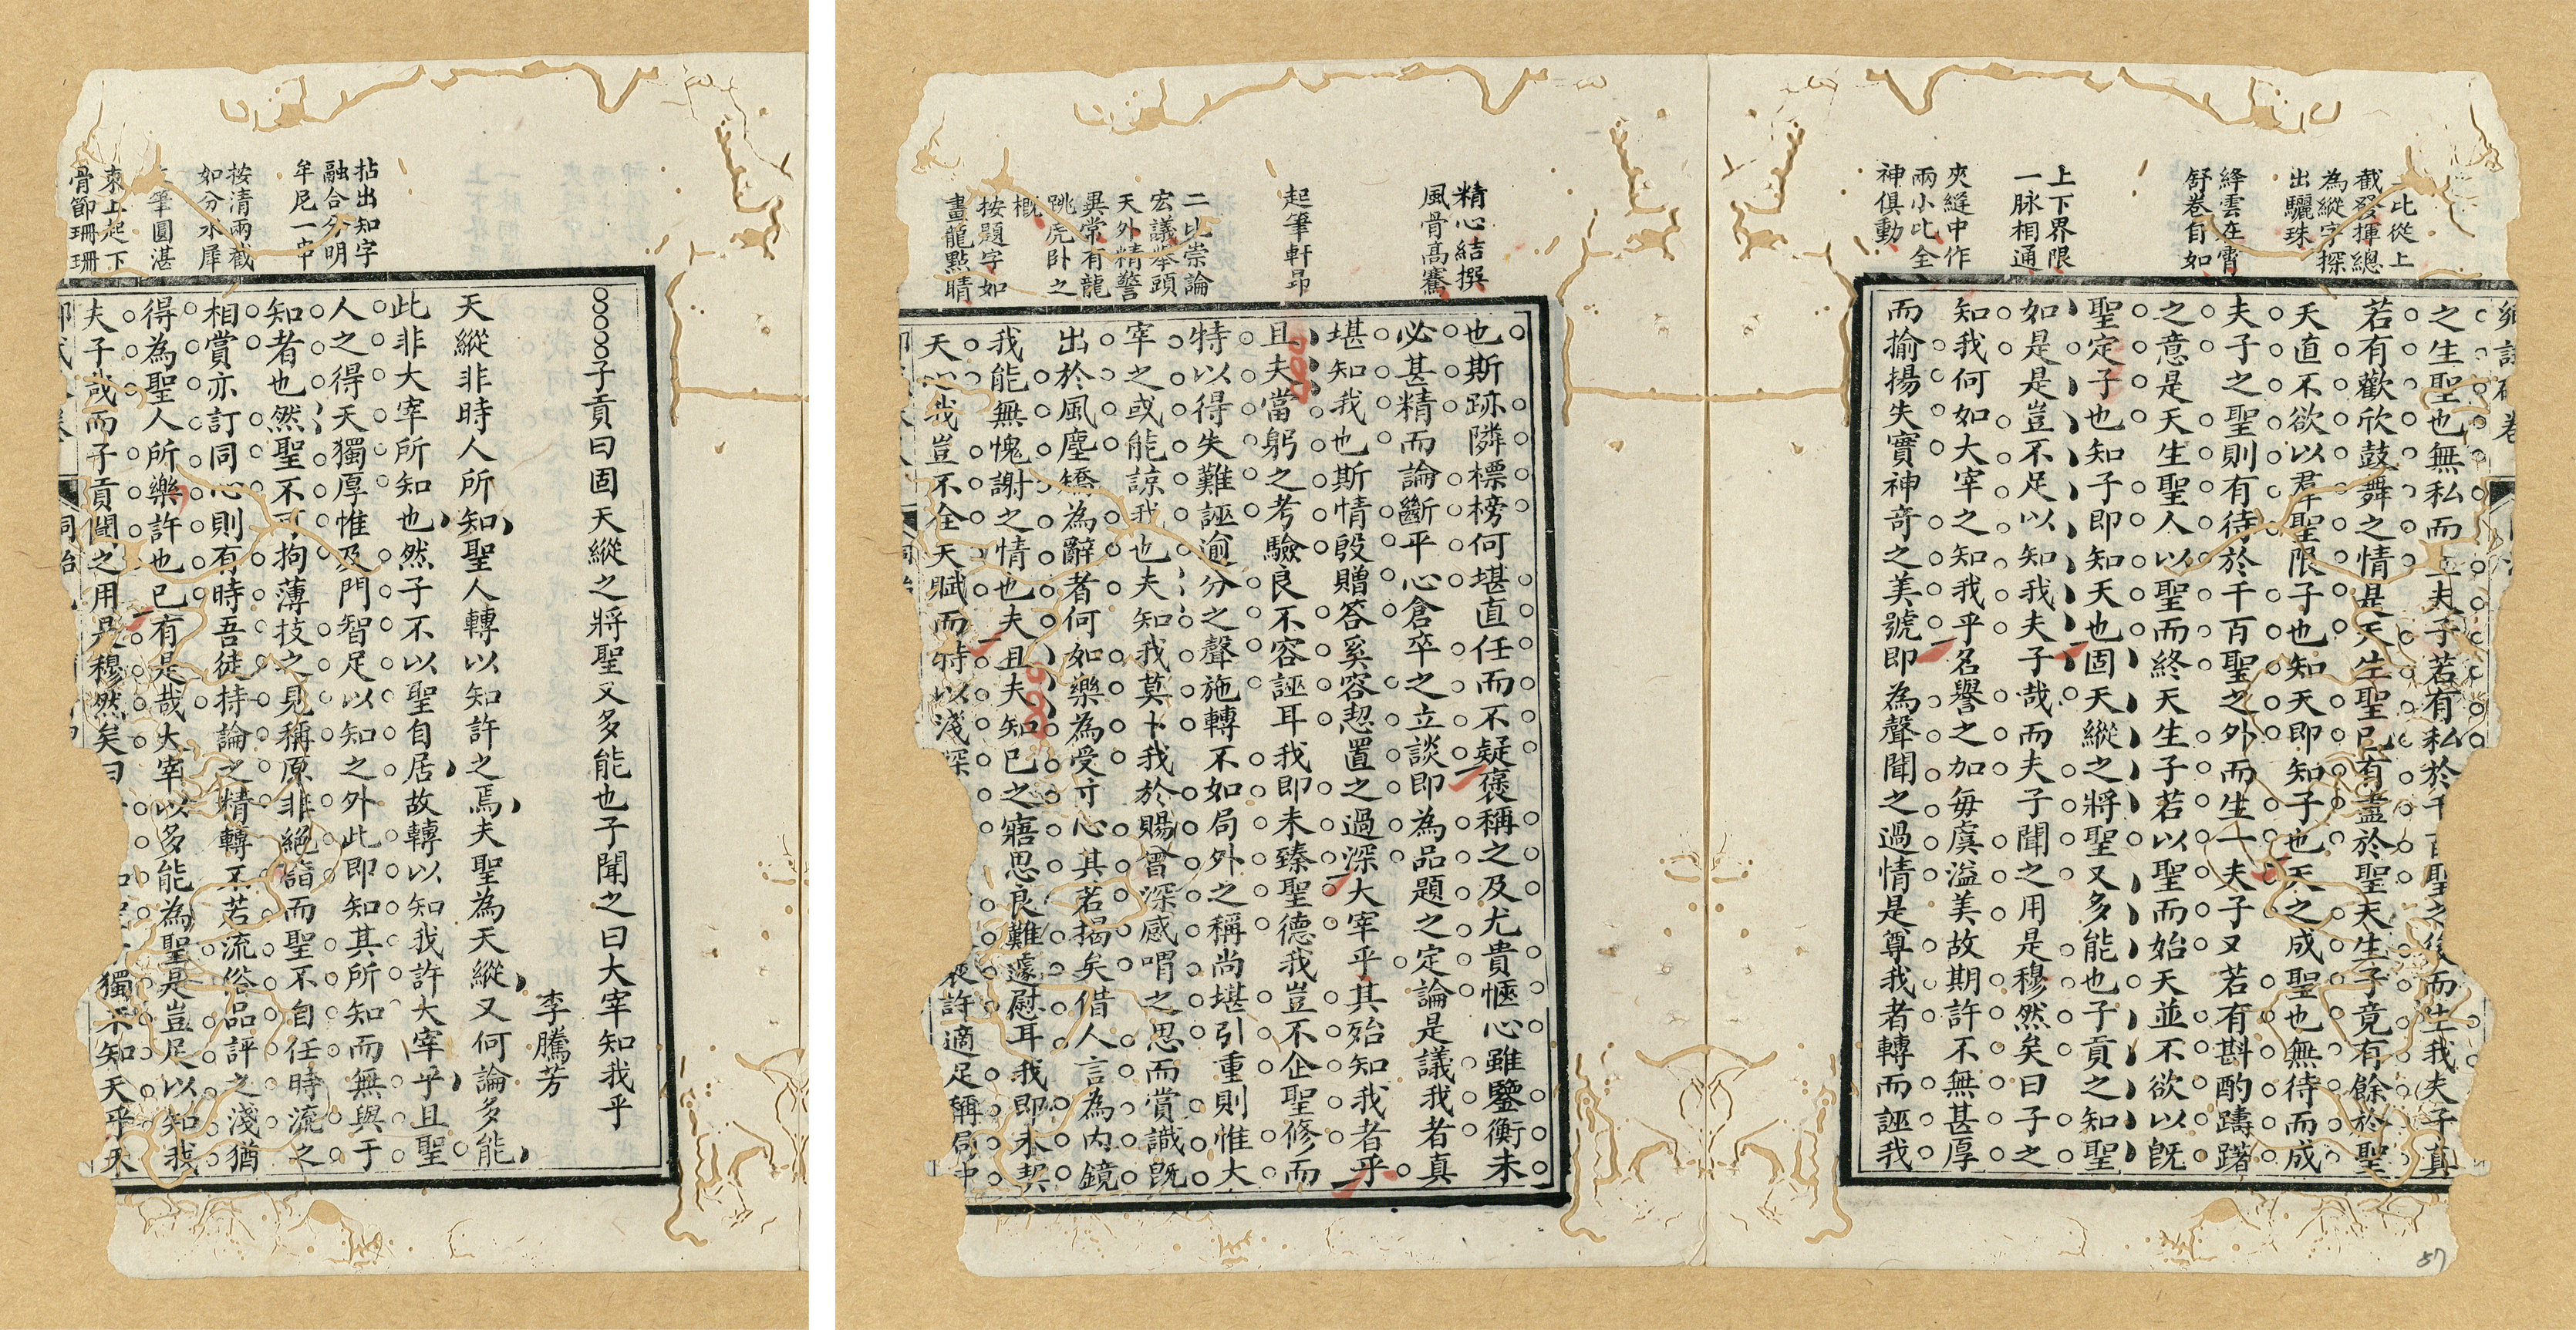 拈出知字
融合分明
牟尼一串
按清兩截
如分水犀
筆圓湛
束上起下
骨節珊珊
子貢曰固天縱之將聖又多能也子聞之曰大宰知我乎
李騰芳
天縱非時人所知聖人轉以知許之焉夫聖為天縱又何論多能
此非大宰所知也然子不以聖自居故轉以知我許大宰乎且聖
人之得天獨厚惟及門智足以知之外此即知其所知而無與于
知者也然聖不可拘薄技之見稱原非絕詣而聖不自任時流之
相賞亦訂同心則有時吾徒持論之精轉不若流俗品評之淺猶
得為聖人所樂許也已有是哉大宰以多能為聖是豈足以知我
夫子哉而子貢聞之用是穆然矣曰獨不知天乎天
二比從上
截發揮總
為縱字探
出驪珠
絳雲在霄
舒卷自如
上下界限
一脉相通
夾縫中作
兩小比全
神俱動
之生聖也無私而立夫子若有私於千百聖之後而生我夫子真
若有歡欣鼓舞之情是天生聖已有盡於聖天生子竟有餘於聖
天直不欲以羣聖限子也知天即知子也天之成聖也無待而成
夫子之聖則有待於千百聖之外而生一夫子又若有斟酌躊躇
之意是天生聖人以聖而終天生子若以聖而始天並不欲以既
聖定子也知子即知天也固天縱之將聖又多能也子貢之知聖
如是是豈不足以知我夫子哉而夫子聞之用是穆然矣曰子之
知我何如大宰之知我乎名譽之加每虞溢美故期許不無甚厚
而揄揚失實神奇之美號即為聲聞之過情是尊我者轉而誣我
精心結撰
風骨高騫
起筆軒昂
二比崇論
宏議舉頭
天外精警
異常有龍
跳虎卧之
概
按題字如
畫龍點睛
也斯跡隣標榜何堪直任而不疑褒稱之及尤貴愜心雖鑒衡未
必甚精而論斷平心倉卒之立談即為品題之定論是議我者真
堪知我也斯情殷贈答奚容恝置之過深大宰乎其殆知我者乎
且夫當躬之考驗良不容誣耳我即未臻聖德我豈不企聖修而
特以得失難誣逾分之聲施轉不如局外之稱尚堪引重則惟大
宰之或能諒我也夫知我莫卜我於賜曾深感喟之思而賞識既
出於風塵矯為辭者何如樂為受寸心其若揭矣借人言為內鏡
我能無愧謝之情也夫且夫知已之寤思良難遽慰耳我即未契
天心我豈不全天賦而特以淺深許適足稱局中